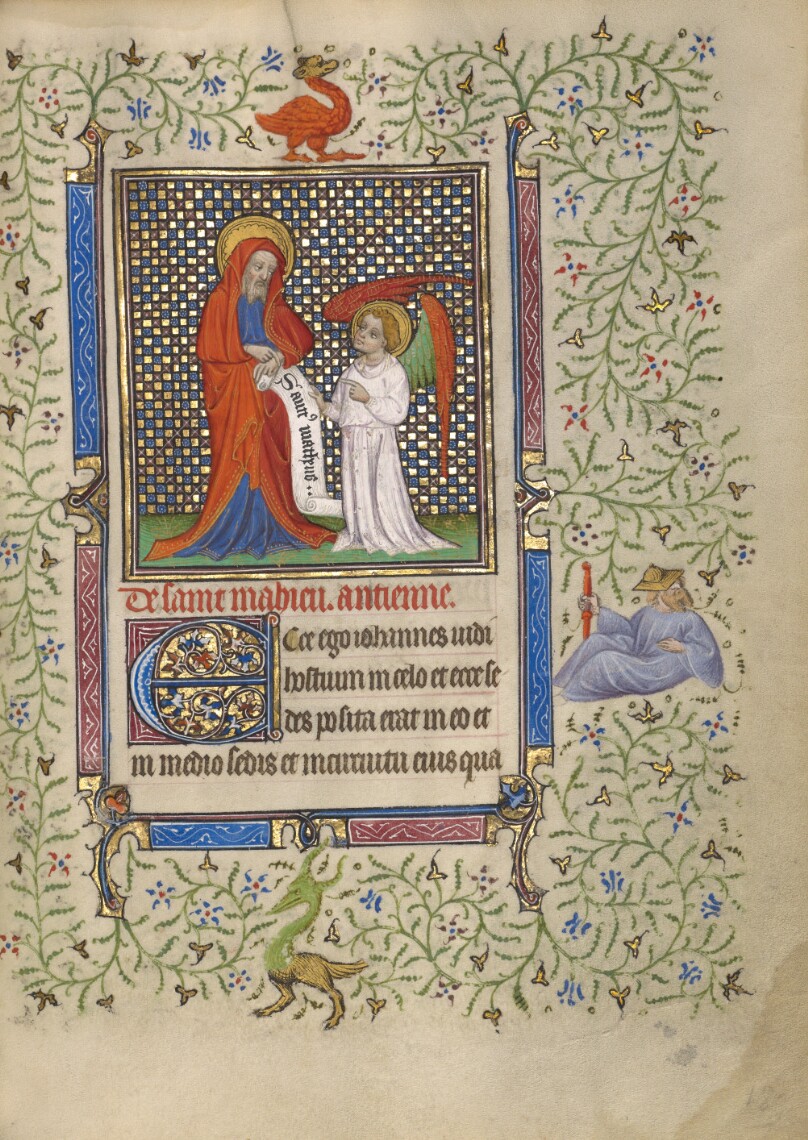 Sanctꝰ matheus
De saint mahieu. antienne.
Ecce ego iohannes uidi
hostium in celo et ecce se
des posita erat in eo et
in medio sedis et in circuitu eius qua